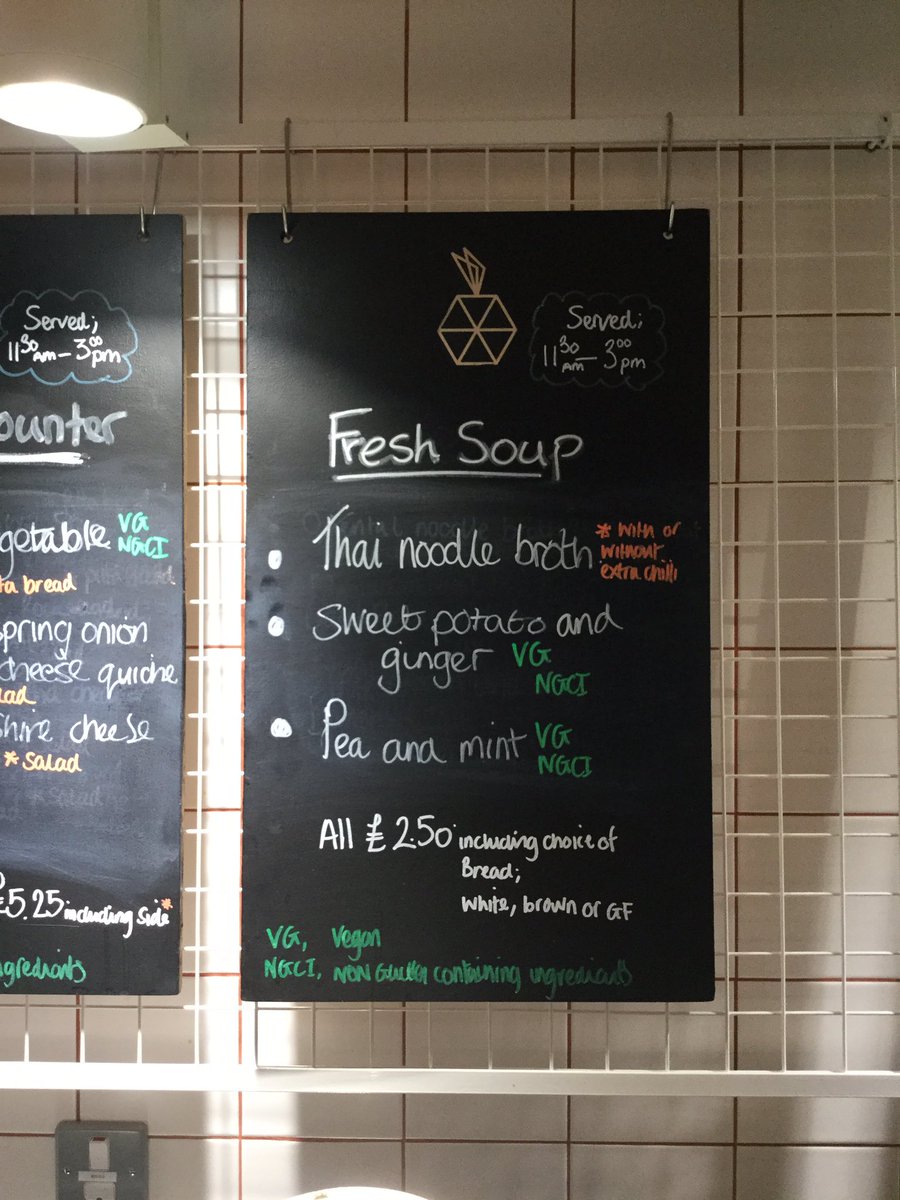 Served;
11 30 AM – 3 00 pm
ounter
getable VG
NGCI
ta bread
spring onion
cheese quiche
lad
shire cheese
* Salad
£5.25 including side*
ngredients
Served;
11 30 AM – 3 00 pm
Fresh Soup
Thai noodle broth * with or
without
extra chilli
Sweet potato and
ginger VG
NGCI
Pea and mint VG
NGCI
All £2.50 including choice of
Bread;
white, brown or GF
VG, Vegan
NGCI, NON Gluten containing ingredients